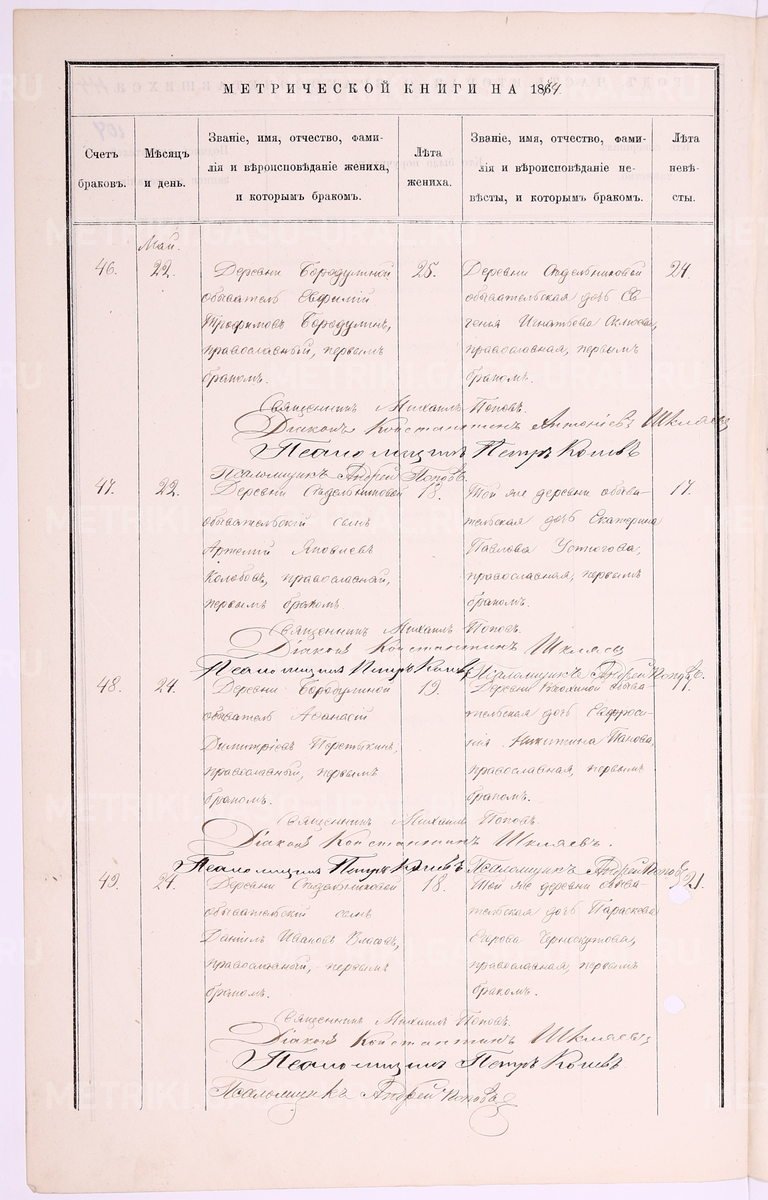 МЕТРИЧЕСКОЙ КНИГИ НА 1864
Счетъ браковъ.
Мѣсяцъ и день.
Званіе, имя, отчество, фами-
лія и вѣроисповѣданіе жениха,
и которымъ бракомъ.
Лѣта жениха.
Званіе, имя, отчество, фами-
лія и вѣроисповѣданіе не-
вѣсты, и которымъ бракомъ.
Лѣта невѣ-
сты.
Май.
46.
22.
Деревни Бородулиной
обыватель Евфимій
Трофимовъ Бородулинъ,
православный, первымъ
бракомъ.
25.
Деревни
обывательская дочь Ев-
генія Игнатьева
православная, первымъ
бракомъ.
24.
Священникъ Михаилъ Поповъ.
Діаконъ Константинъ Антоніевъ Шкляевъ
Псаломщикъ Петръ
Псаломщикъ Андрей Поповъ.
47.
22.
Деревни
обывательскій сынъ
Артемій Яковлевъ
Колобовъ, православный,
первымъ бракомъ.
18.
Той же деревни обыва-
тельская дочь Екатерина
Павлова Устюгова,
православная, первымъ
бракомъ.
17.
Священникъ Михаилъ Поповъ.
Діаконъ Константинъ Шкляевъ
Псаломщикъ Петръ
Псаломщикъ Андрей Поповъ.
48.
24.
Деревни Бородулиной
обыватель Аѳанасій
Димитріевъ
православный, первымъ
бракомъ.
19.
Деревни обыва-
тельская дочь Евфроси-
нія Никитина Панова,
православная, первымъ
бракомъ.
Священникъ Михаилъ Поповъ.
Діаконъ Константинъ Шкляевъ.
Псаломщикъ Петръ
Псаломщикъ Андрей Поповъ
49.
24.
Деревни
обывательскій сынъ
Даніилъ Ивановъ Власовъ,
православный, первымъ
бракомъ.
18.
Той же деревни обыва-
тельская дочь Параскева
православная, первымъ
бракомъ.
21.
Священникъ Михаилъ Поповъ.
Діаконъ Константинъ Шкляевъ
Псаломщикъ Петръ
Псаломщикъ Андрей Поповъ